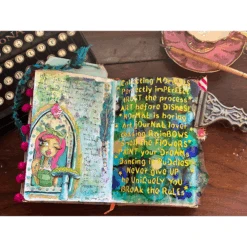 Collecting Moments
Perfectly imperfect
TRUST the process
Art before Dishes
Normal is boring
Art Journal lover
Chasing RAINBOWS
PAINT your DREAMS
Dancing in Puddles
Never give up
Be UNiQUELY YOU
BREAK the RULES